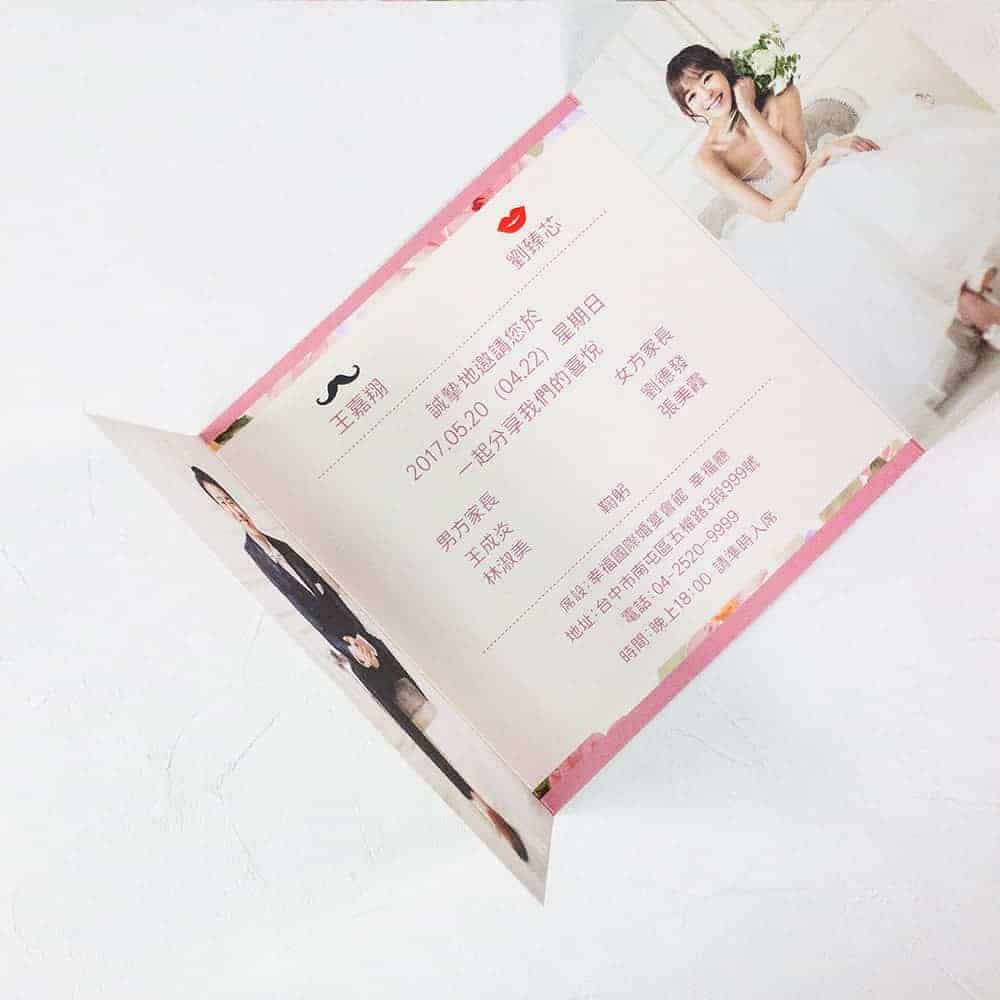 王嘉翔
劉臻芯
誠摯地邀請您於
2017.05.20 (04.22) 星期日
一起分享我們的喜悅
男方家長
王成炎
林淑美
女方家長
劉德發
張美霞
鞠躬
席設：幸福國際婚宴會館 幸福廳
地址：台中市南屯區五權路3段999號
電話：04-2520-9999
時間：晚上18:00 請準時入席